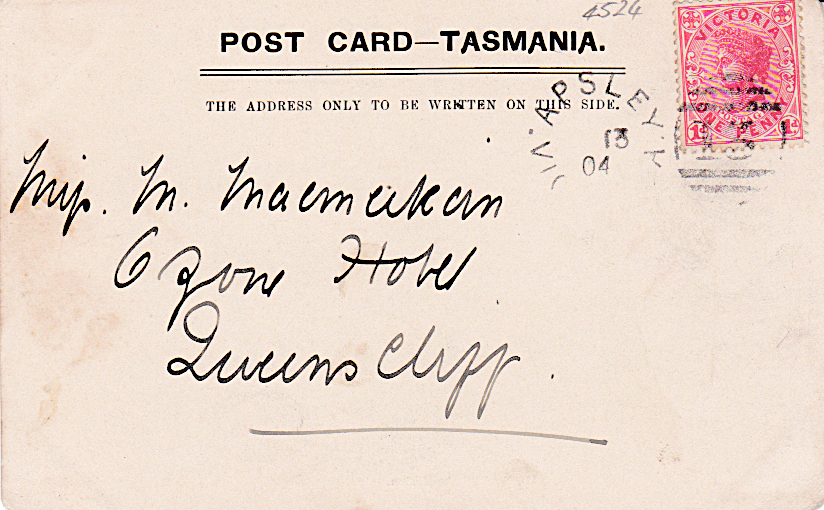 4524
POST CARD—TASMANIA.
THE ADDRESS ONLY TO BE WRITTEN ON THIS SIDE.
VICTORIA
ONE PENNY
1d 1d
APSLEY
13
04
Miss. M. Macmeikan
Ozone Hotel
Queenscliff.